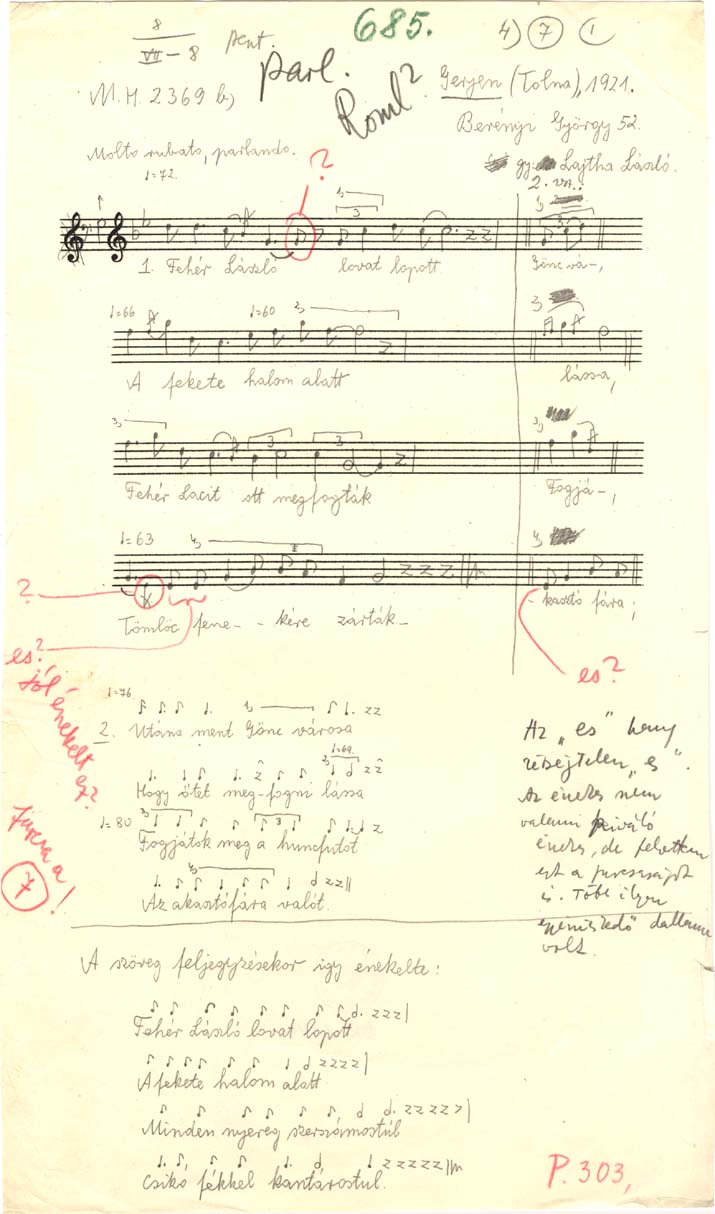 8
VII - 8
pent.
685.
4) 7 1
M.H. 2369 b)
parl.
Gerjen (Tolna), 1921.
Berényi György 52.
Molto rubato, parlando.
gy. Lajtha László.
2. vsz.:
♩=72.
?
1. Fehér László lovat lopott
Gönc vá-,
♩=66 ♩=60
A fekete halom alatt
lássa,
Fehér Lacit ott megfogták
Fogjá-,
♩=63
?
Tömlöc fene- - kére zárták -
- kasztó fára;
es?
es?
jól énekelt ez?
♩=76
2. Utána ment Gönc városa
Hogy őtet meg-fogni lássa
♩=80
Fogjátok meg a huncfutot
Az akasztófára valót.
furcsa a!
7
Az "es" hang
kétségtelen "es".
Az énekes nem
valami kiváló
énekes, de felvettem
ezt a furcsaságot
is. Több ilyen
dallama
volt.
A szöveg feljegyzésekor így énekelte:
Fehér László lovat lopott
A fekete halom alatt
Minden nyereg szerszámostúl
Csikó fékkel kantárostul.
P. 303,